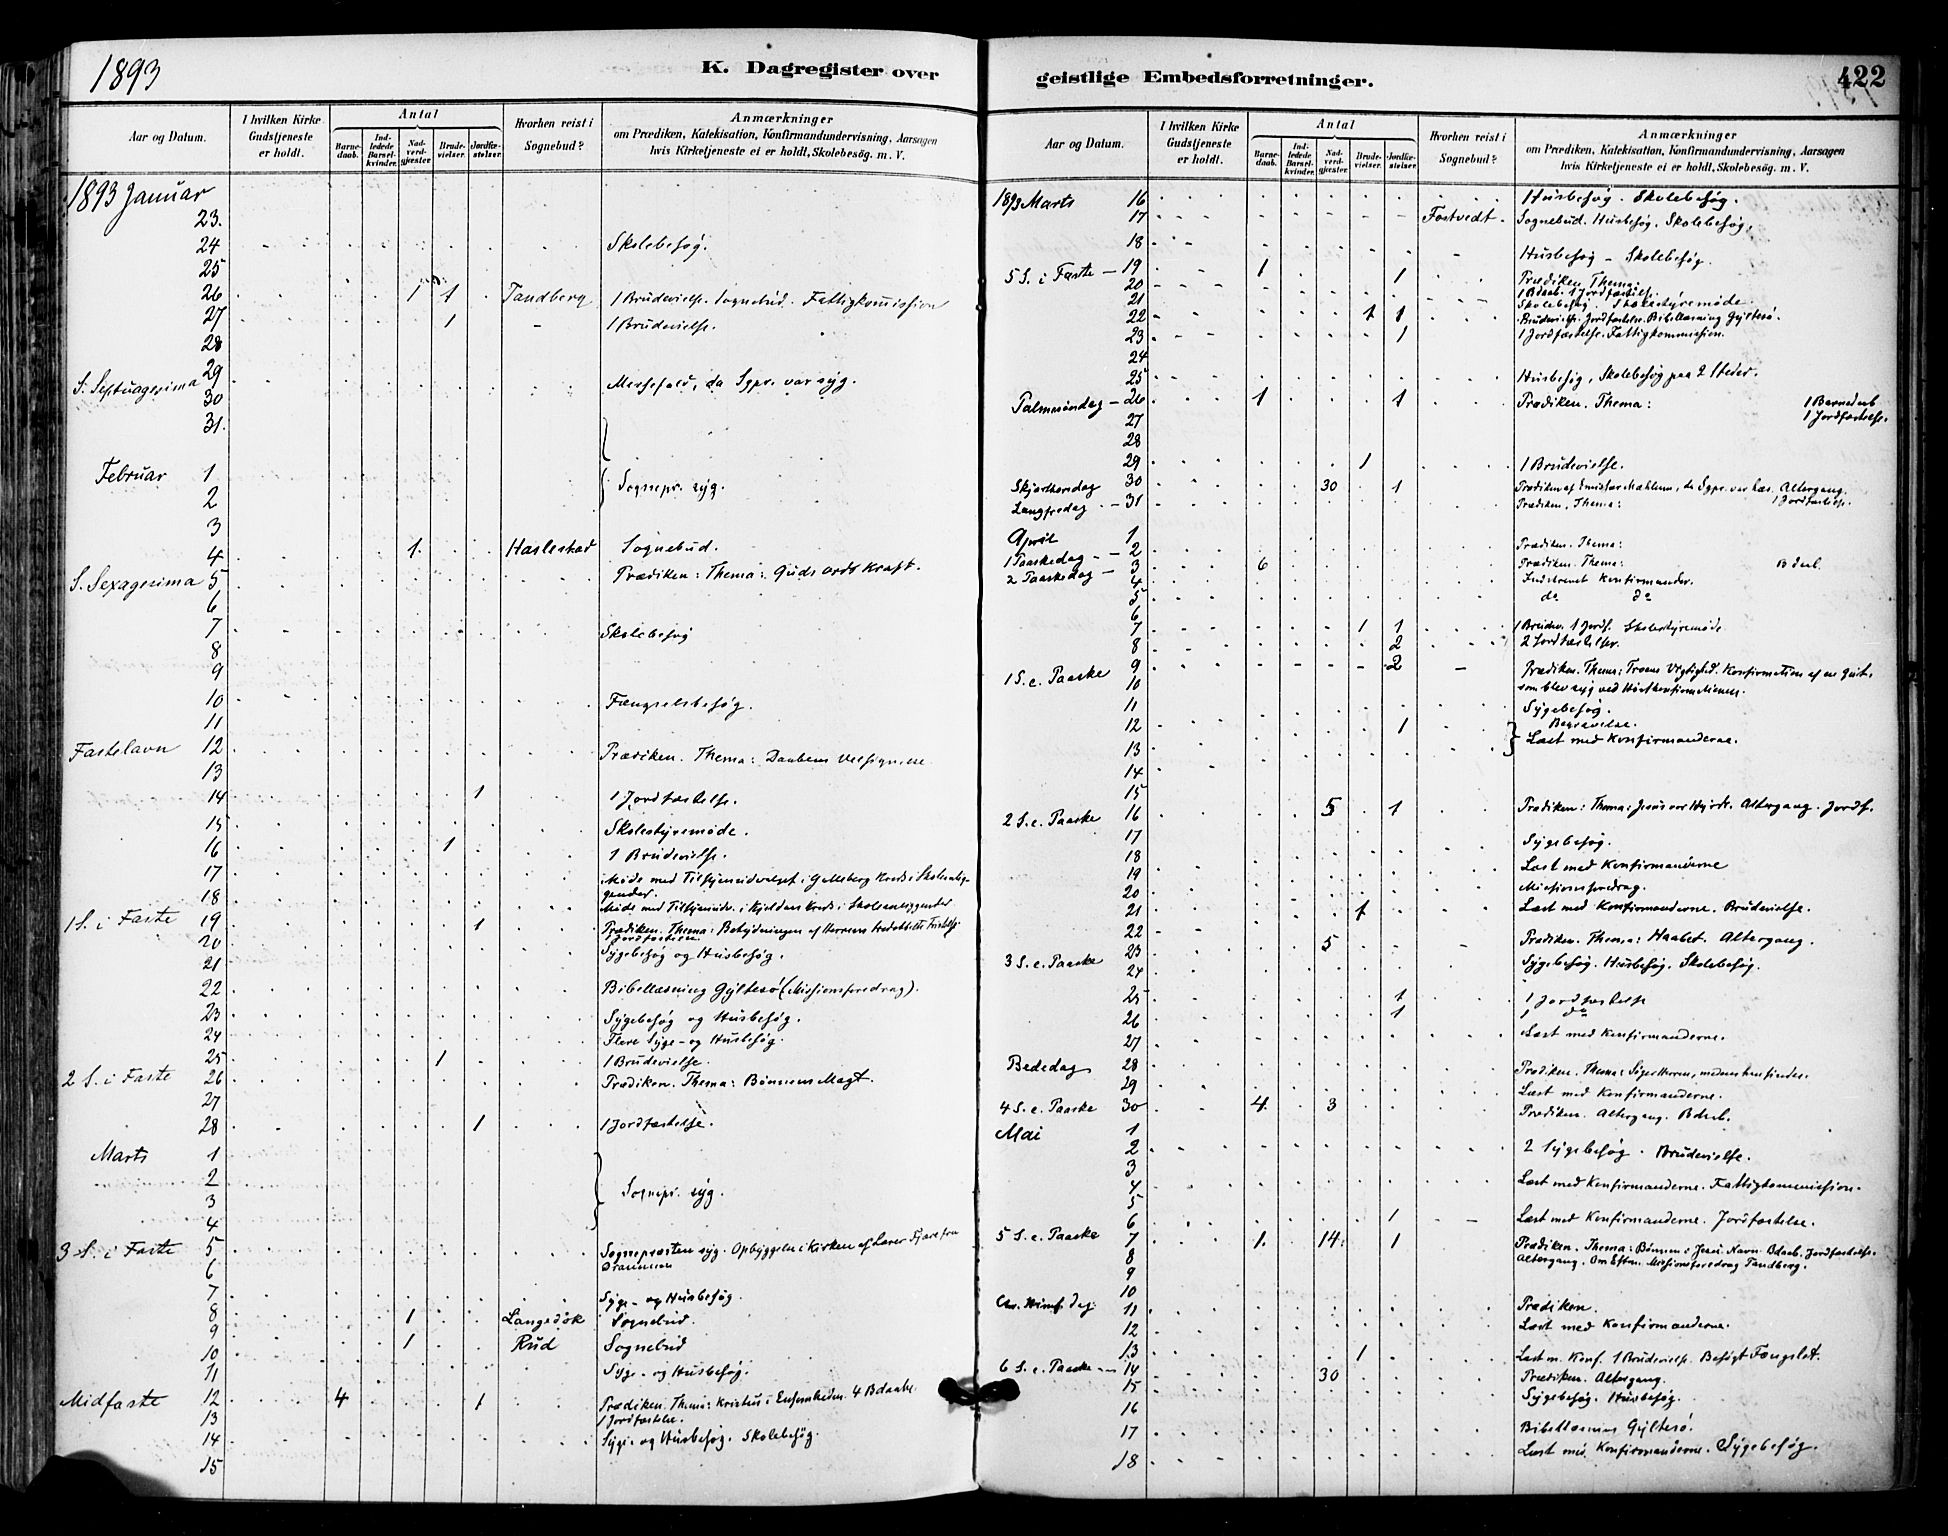 1893
K. Dagregister over
Aar og Datum.
I hvilken Kirke Gudstjeneste er holdt.
Antal
Barnedaab.
Indledede Barselkvinder.
Nadverdgjester
Brudevielser.
Jordfæstelser.
Hvorhen reist i Sognebud?
Anmærkninger
om Prædiken, Katekisation, Konfirmandundervisning, Aarsagen
hvis Kirketjeneste ei er holdt, Skolebesøg. m. V.
1893 Januar
23.
24 Skolebesøg.
25
26 1 1 Tandberg 1 Brudevielse. Sognebud. Fattigkommission
27 1 1 Brudevielse.
28
S. Septuagesima 29 Messefald, da Sgpr. var syg.
30
31.
Februar 1
2 Sognepr. syg.
3
4 1. Haslestad Sognebud.
S. Sexagesima 5 Prædiken: Thema: Guds ords Kraft.
6
7 Skolebesøg
8
9
10 Fængselsbesøg.
11
Fastelavn 12 Prædiken. Thema: Daabens Velsignelse
13
14 1 1 Jordfæstelse.
15 Skolestyremøde.
16 1 1 Brudevielse.
17 Møde med Tilsynsudvalget i Galleberg Kreds i Skolean-
gender.
18 Møde med Tilsynsudv. i Kjeldaas Kreds i Skoleanliggender
1 S. i Faste 19 1 Prædiken. Thema: Betydningen af Herrens Fristelse
1 Jordfæstelse.
20 Sygebesøg og Husbesøg.
21
22 Bibellæsning Gyltesø (Missionsforedrag).
23 Sygebesøg og Husbesøg.
24 Flere Syge- og Husbesøg.
25 1 1 Brudevielse.
2 S. i Faste 26 Prædiken. Thema: Bønnens Magt.
27
28 1 1 Jordfæstelse.
Marts 1
2 Sognepr. syg.
3
4
3 S. i Faste 5 Sognepræsten syg. Opbyggelse i Kirken af Lærer Fjære fra
Drammen
6
7 Syge- og Husbesøg.
8 1 Langesøk Sognebud.
9 1 Rud Sognebud
10
11 Syge- og Husbesøg.
Midfaste 12 4 1 Prædiken. Thema: Kristus i Ensomheden. 4 Bdaabe.
1 Jordfæstelse.
13
14 Syge- og Husbesøg. Skolebesøg.
15
geistlige Embedsforretninger.
422
Aar og Datum.
I hvilken Kirke Gudstjeneste er holdt.
Antal
Barnedaab.
Indledede Barselkvinder.
Nadverdgjester
Brudevielser.
Jordfæstelser.
Hvorhen reist i Sognebud?
Anmærkninger
om Prædiken, Katekisation, Konfirmandundervisning, Aarsagen
hvis Kirketjeneste ei er holdt, Skolebesøg. m. V.
1893 Marts 16 Husbesøg. Skolebesøg.
17 Fostvedt. Sognebud. Husbesøg. Skolebesøg.
18 Husbesøg - Skolebesøg.
5 S. i Faste - 19 1 1 Prædiken Thema:
1 Bdaab. 1 Jordfæstelse.
20
21 Skolebesøg. Skolestyremøde.
22 1 1 Brudevielse. Jordfæstelse. Bibellæsning Gyltesø.
23 1 1 Jordfæstelse. Fattigkommission.
24
25 Husbesøg, Skolebesøg paa 2 Steder.
Palmesøndag - 26 1 1 Prædiken. Thema: 1 Barnedaab
1 Jordfæstelse.
27
28
29 1 1 Brudevielse.
Skjærthorsdag 30 30 1 Prædiken af Emissær Mæhlum, da Sgpr. var hæs. Altergang.
1 Jordfæstelse.
Langfredag - 31 Prædiken. Thema:
April 1
1 Paaskedag - 2 Prædiken. Thema:
2 Paaskedag - 3 6 Prædiken. Thema: Bdaab.
4 Indskrevet Konfirmander.
5 do do
6
7 1 1 1 Brudev. 1 Jordf. Skolestyremøde
8 2 2 Jordfæstelser.
1 S. e. Paaske 9 2 Prædiken. Thema: Troens Vigtighed. Konfirmation af en Gut,
som blev syg ved Høstkonfirmationen.
10
11 Sygebesøg.
12 1 Begravelse.
13 Læst med Konfirmanderne.
14
15
2 S. e. Paaske 16 5 1 Prædiken: Thema: Jesus vor Hyrde. Altergang. Jordf.
17 Sygebesøg.
18 Læst med Konfirmanderne
19
20 Missionsforedrag.
21 1 Læst med Konfirmanderne. Brudevielse.
22
3 S. e. Paaske 23 5 Prædiken. Thema: Haabet. Altergang.
24 Sygebesøg. Husbesøg. Skolebesøg.
25 1 1 Jordfæstelse
26 1 1 do
27 Læst med Konfirmanderne.
Bededag 28 Prædiken. Thema: Søger Herren, medens han findes.
29 Læst med Konfirmanderne.
4 S. e. Paaske 30 4. 3 Prædiken. Altergang. Bdaab.
Mai 1
2 2 Sygebesøg. Brudevielse.
3
4 Læst med Konfirmanderne. Fattigkommission.
5
6 1 Læst med Konfirmanderne. Jordfæstelse.
5 S. e. Paaske 7 1. 14. 1 Prædiken. Thema: Bønnen i Jesu Navn. Bdaab. Jordfæstelse.
Altergang. Om Eftm. Missionsforedrag Tandberg.
8
9
10
Chr. Himf. Dag 11 Prædiken.
12 Læst med Konfirmanderne.
13 1 Læst m. Konf. 1 Brudevielse. Besøgt Fængslet.
6 S. e. Paaske - 14 30 Prædiken. Altergang.
15 Sygebesøg. Husbesøg.
16
17 Bibellæsning Gyltesø.
18 Læst med Konfirmanderne. Sygebesøg.